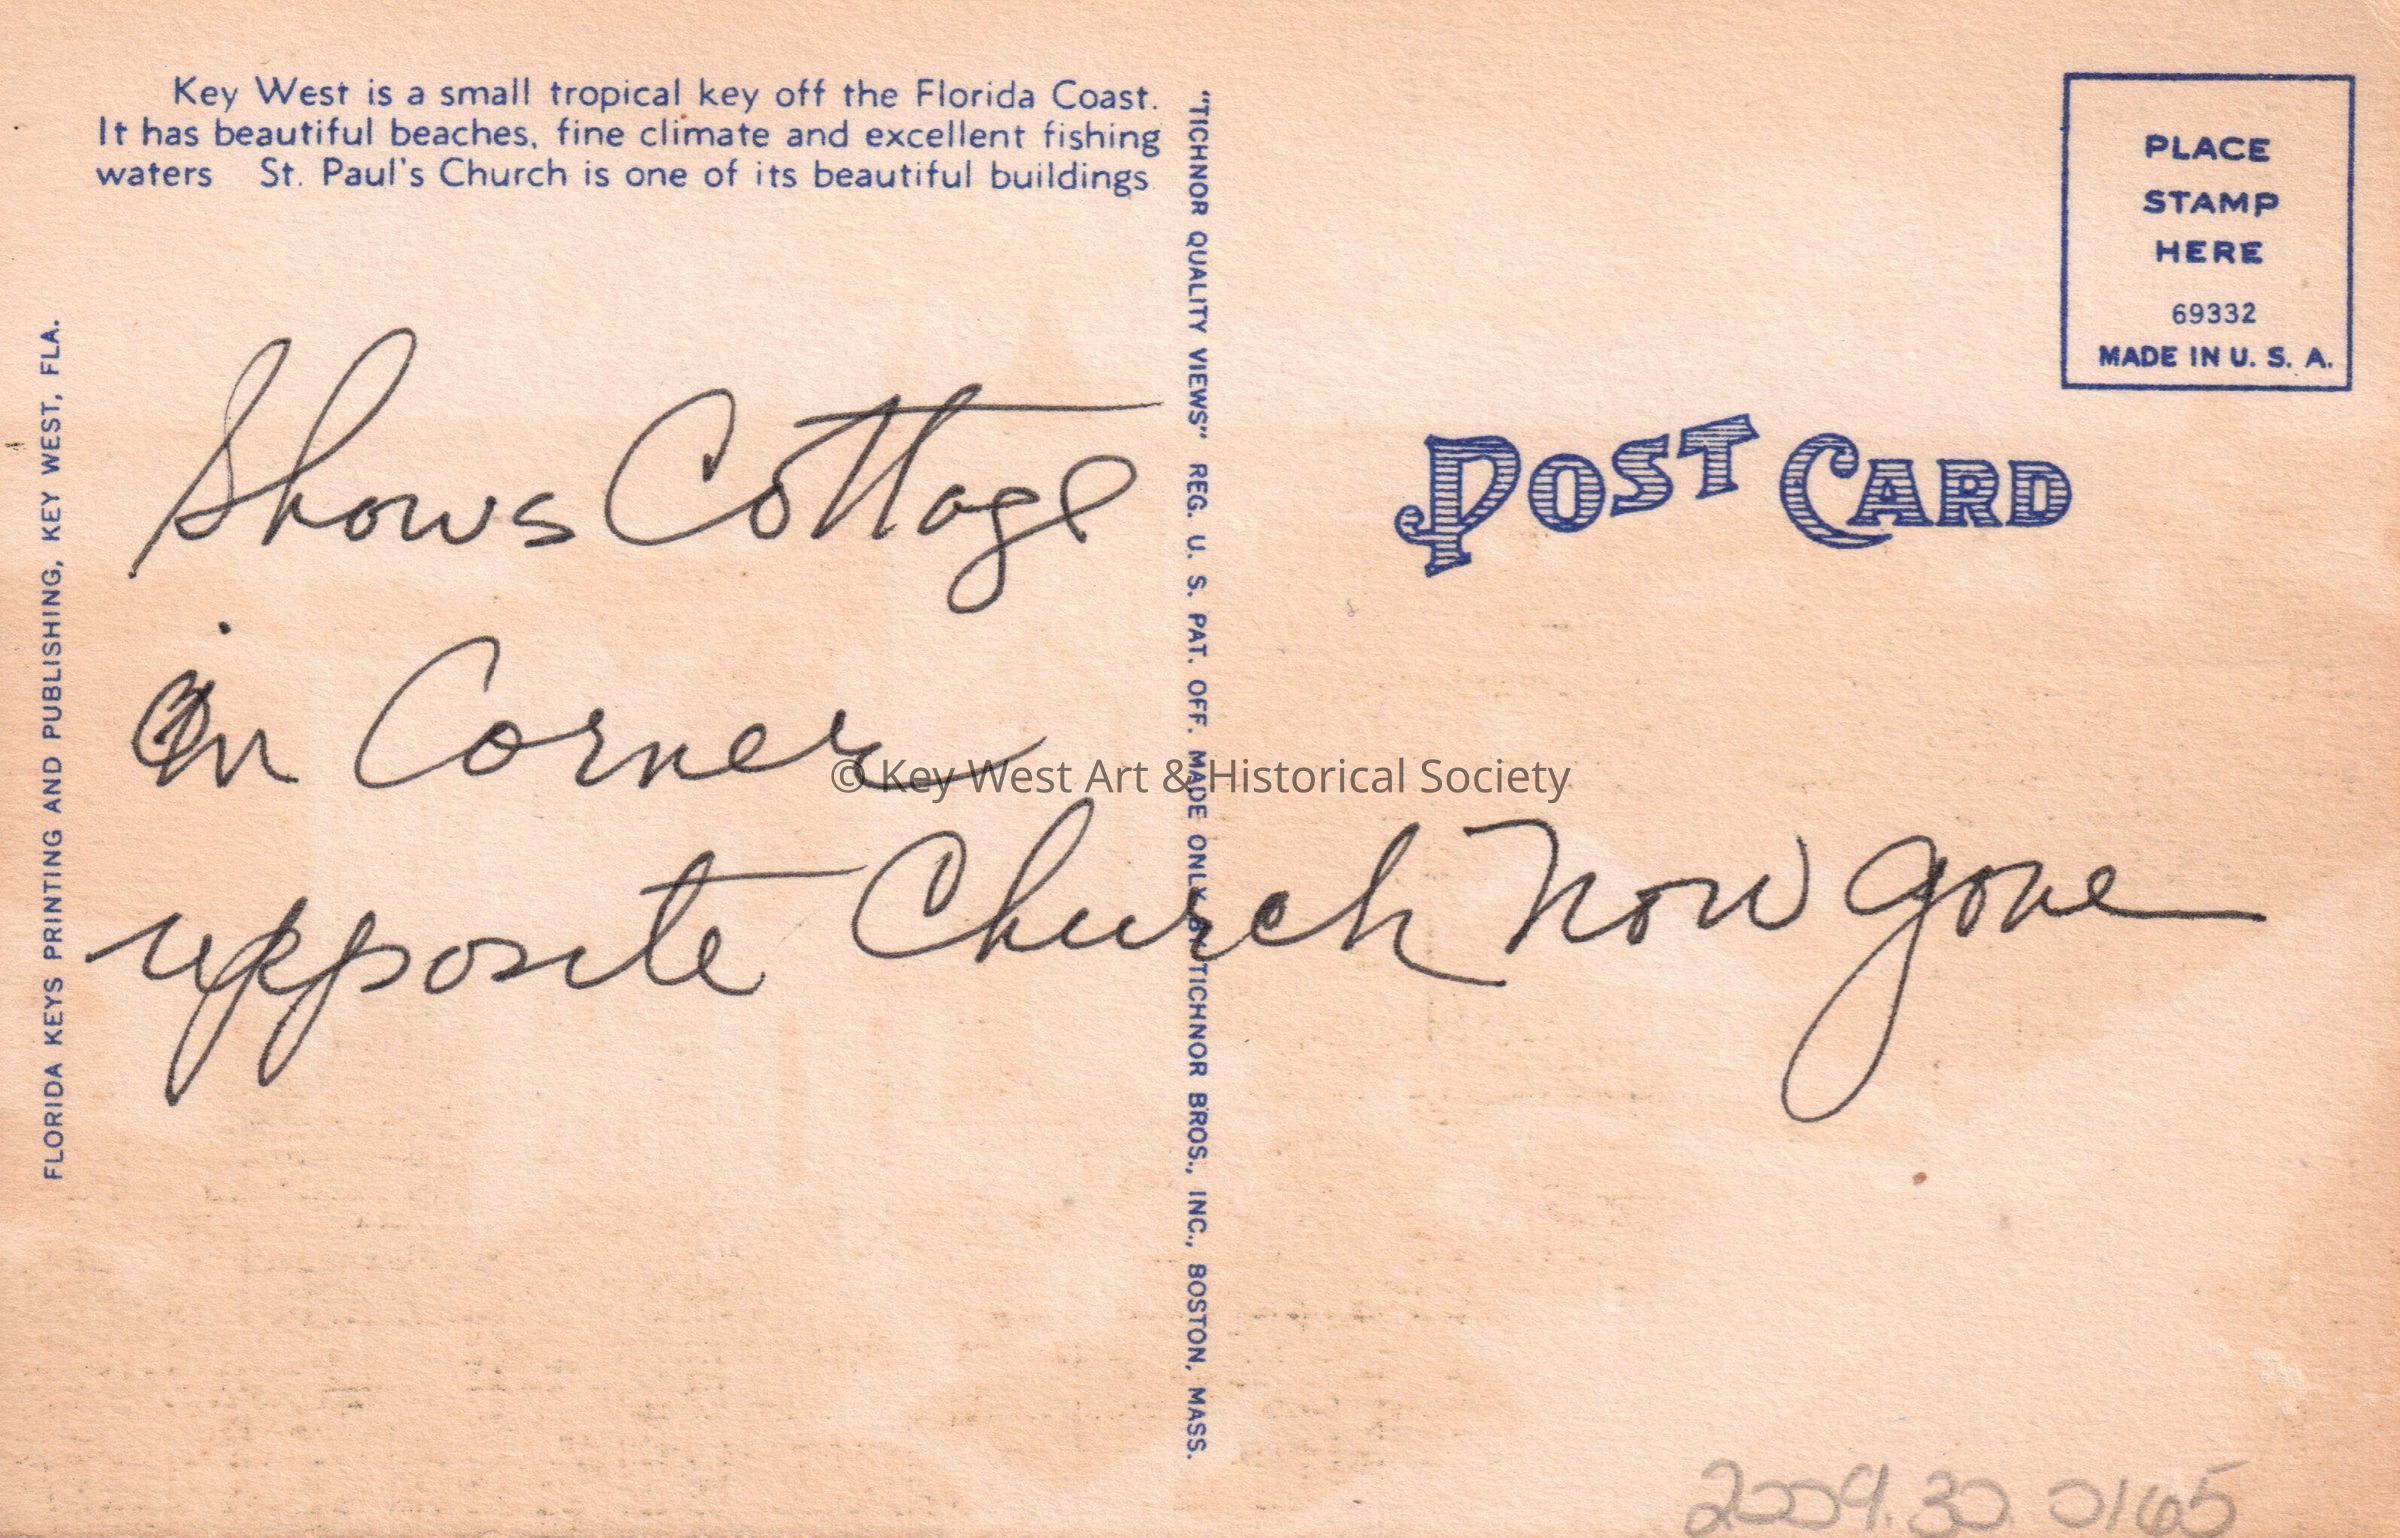 Key West is a small tropical key off the Florida Coast.
It has beautiful beaches, fine climate and excellent fishing
waters St. Paul's Church is one of its beautiful buildings
FLORIDA KEYS PRINTING AND PUBLISHING, KEY WEST, FLA.
"TICHNOR QUALITY VIEWS" REG. U. S. PAT. OFF. MADE ONLY BY TICHNOR BROS., INC., BOSTON, MASS.
PLACE
STAMP
HERE
69332
MADE IN U. S. A.
POST CARD
Shows Cottage
in Corner
opposite Church Now gone
© Key West Art & Historical Society
2009.30.0165